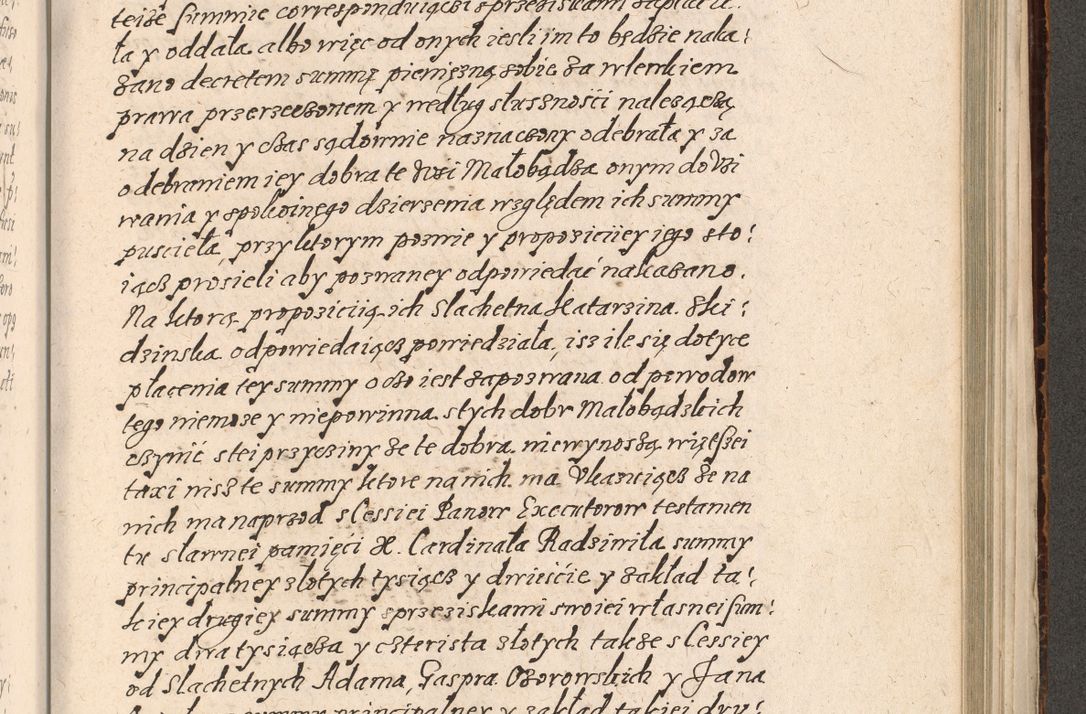 teize summie correspunduiączi zprzeziskami zapłaciła
ła y oddała albo więc od onych iesli im to będzie naka:
zano decretem summę pieniężną sobie za wlewkiem
prawa przerzeczonem y według słusznosći nalezączą
na dzien y czas sądownie naznaczony odebrała y za
odebraniem iey dobra te Wsi Małobądza onym do Vzi
wania y spokoinego dzierzenia względem ich summy
pusciełа, przy ktorym pozwie y propoziciiey iego sto:
iącz prosieli aby pozwaney odpowiedać nakazano.
Na ktorą propoziciią ich Slachetna Katarzina Ski:
dzinska odpowiedaiącz powiedziała, isz ile się dotyce
płacenia tey summy o czo iest zapozwana od powodow
tego niemoze y niepowinna stych dobr Małobądzkich
czynić stei przyciny ze te dobra niewynoszą więtszei
taxi nisz te summy ktore na nich ma Vkazuiącz ze na
nich ma naprzod sCessiei Panow Executorow testamen
tu slawnei pamięci X. Cardinała Radziwiła summy
principalney złotych tysiącz y dwieście y zakład ta:
kiey drugiey summy zprzeziskami swoiei własnei sum:
my dwa tysiącza y czterista złotych takze s Cessiey
od Slachetnych Adama, Gaspra Ozorowskich y Jana
summy principalney y zakład takiei dru: